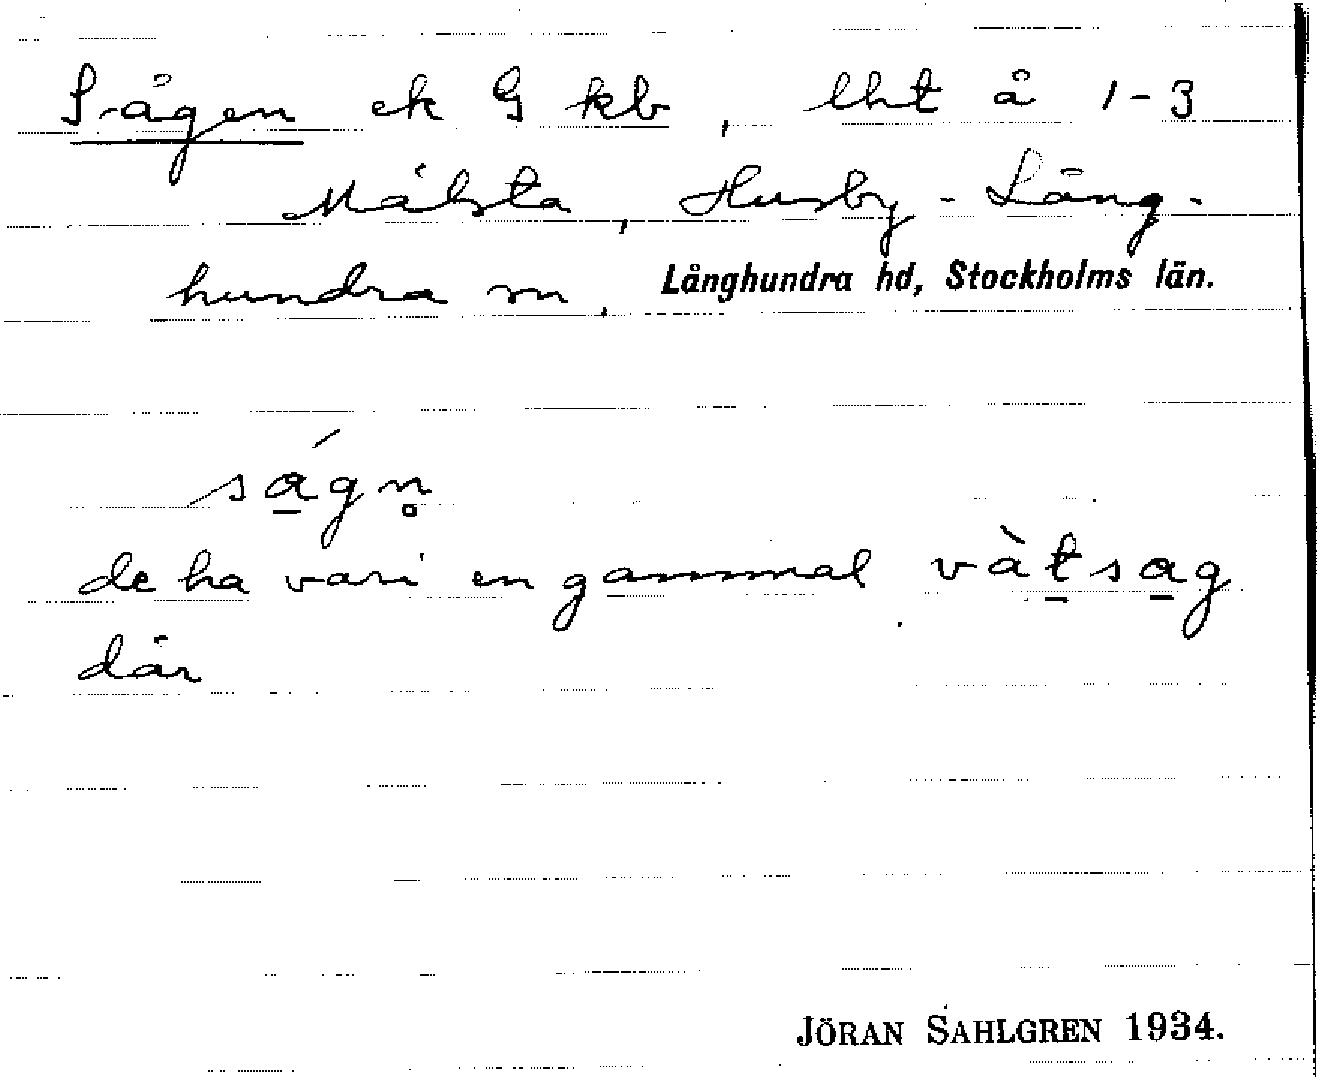 Sågen ek G kb, lht å 1-3
Mälsta, Husby-Lång-
hundra sn, Långhundra hd, Stockholms län.
sa̱´gn̥
de ha vari en gammal vàṯsa̱g
där
JÖRAN SAHLGREN 1934.